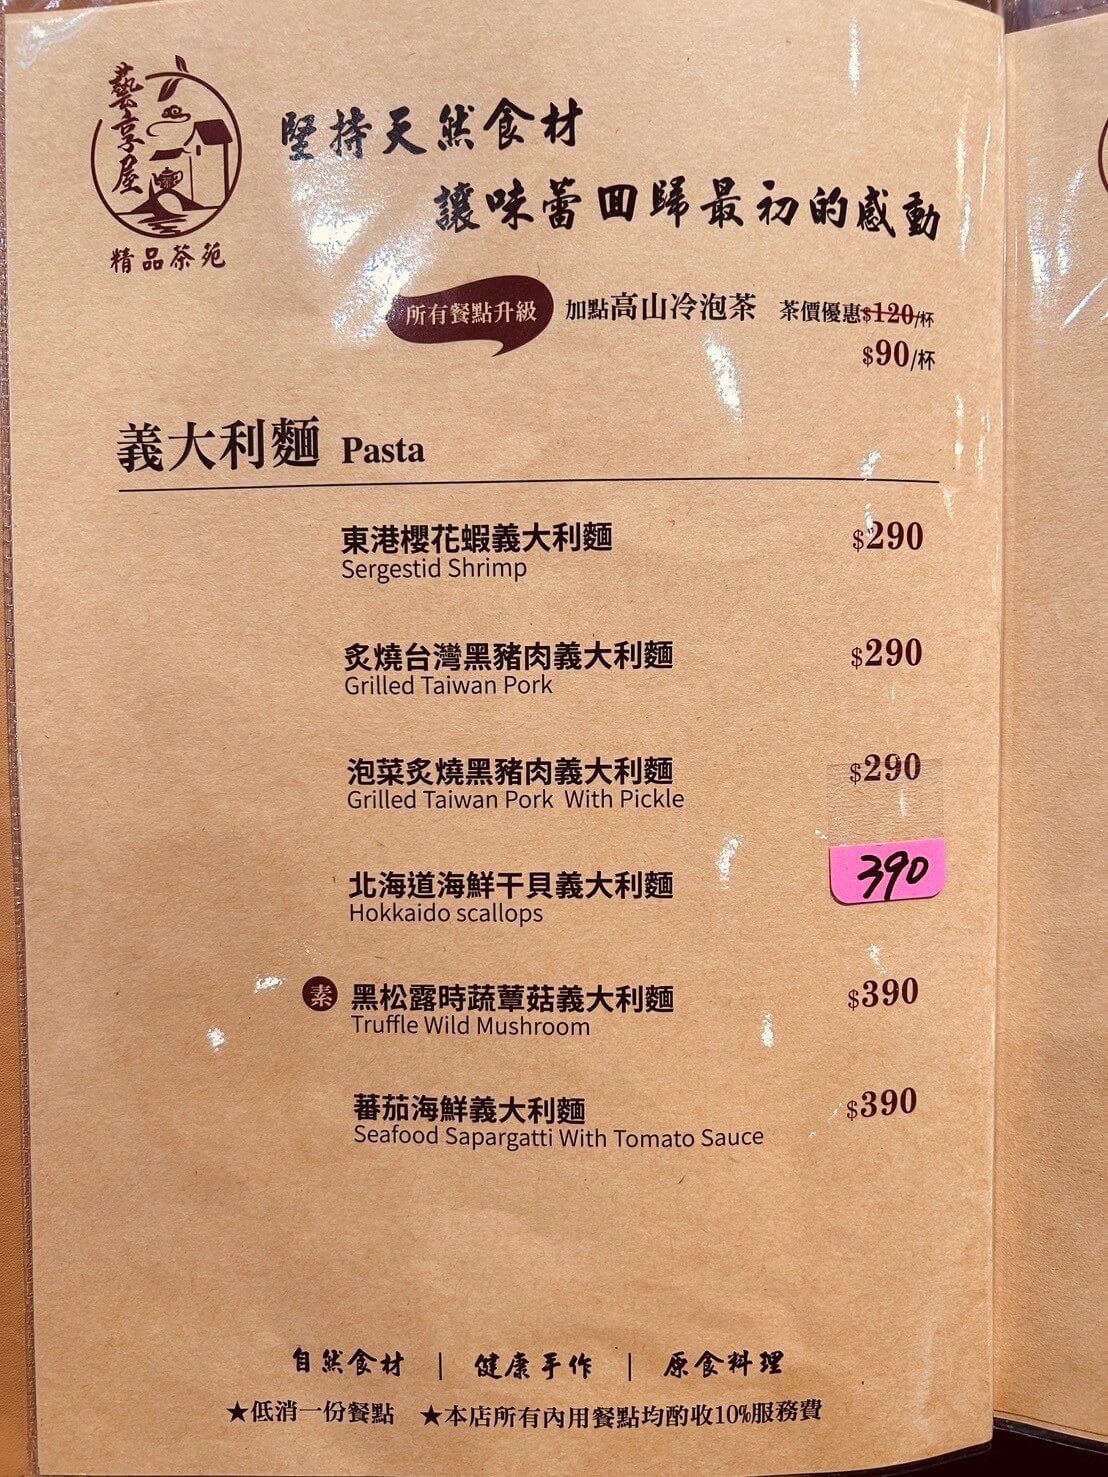 藝享屋
精品茶苑
堅持天然食材
讓味蕾回歸最初的感動
所有餐點升級 加點高山冷泡茶 茶價優惠$120/杯
$90/杯
義大利麵 Pasta
東港櫻花蝦義大利麵 $290
Sergestid Shrimp
炙燒台灣黑豬肉義大利麵 $290
Grilled Taiwan Pork
泡菜炙燒黑豬肉義大利麵 $290
Grilled Taiwan Pork With Pickle
北海道海鮮干貝義大利麵 390
Hokkaido scallops
素 黑松露時蔬蕈菇義大利麵 $390
Truffle Wild Mushroom
蕃茄海鮮義大利麵 $390
Seafood Sapargatti With Tomato Sauce
自然食材 | 健康手作 | 原食料理
★低消一份餐點 ★本店所有內用餐點均酌收10%服務費